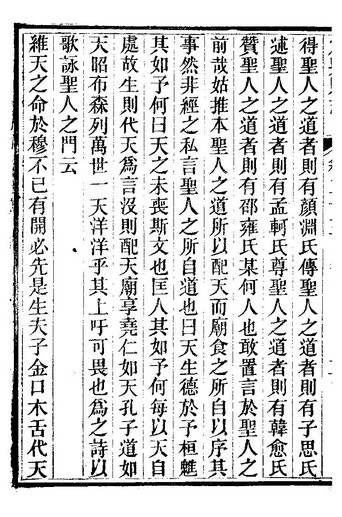 得聖人之道者則有顏淵氏傳聖人之道者則有子思氏
述聖人之道者則有孟軻氏尊聖人之道者則有韓愈氏
贊聖人之道者則有邵雍氏某何人也敢置言於聖人之
前哉姑推本聖人之道所以配天而廟食之所自以序其
事然非經之私言聖人之所自道也曰天生德於予桓魋
其如予何曰天之未喪斯文也匡人其如予何每以天自
處故生則代天爲言沒則配天廟享堯仁如天孔子道如
天昭布森列萬世一天洋洋乎其上吁可畏也爲之詩以
歌詠聖人之門云
維天之命於穆不已有開必先是生夫子金口木舌代天